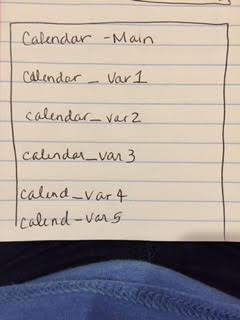 Calendar - Main
Calendar _ Var 1
calendar_ var 2
calendar_var 3
calend_var 4
calend-var 5